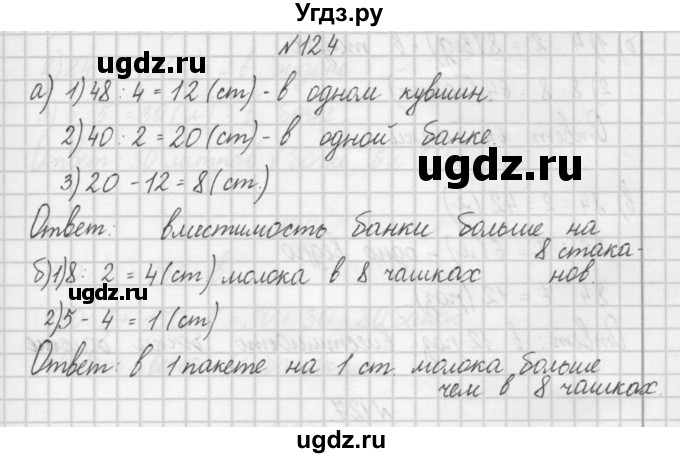 Угдз.ру
№124
а) 1) 48 : 4 = 12 (ст) - в одном кувшин.
2) 40 : 2 = 20 (ст) - в одной банке.
3) 20 - 12 = 8 (ст.)
Ответ: вместимость банки больше на
8 стака-
нов.
б) 1) 8 : 2 = 4 (ст) молока в 8 чашках
2) 5 - 4 = 1 (ст)
Ответ: в 1 пакете на 1 ст. молока больше
чем в 8 чашках.
ugdz.ru
ugdz.ru
ugdz.ru
ugdz.ru
№127